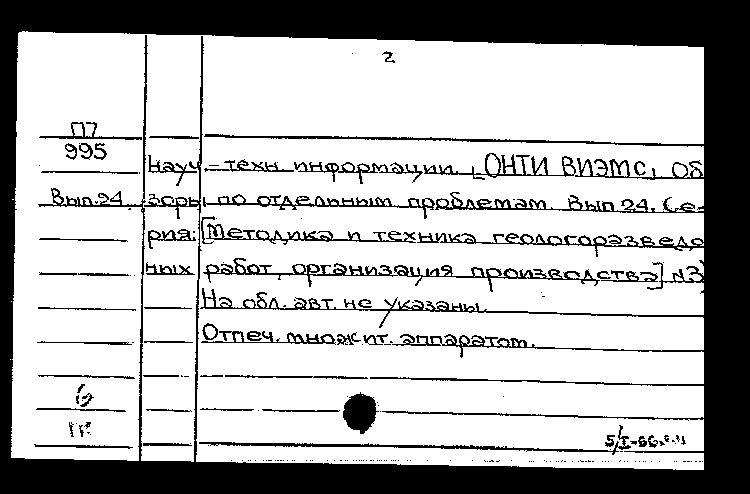 2
П7
995
Науч.-техн. информации. [ОНТИ ВИЭМС] Об
Вып.24 зоры по отдельным проблемам. Вып 24. (Се-
рия: [Методика и техника геологоразведо
ных работ, организация производства] №3)
На обл. авт. не указаны.
Отпеч. множит. аппаратом.
6
5/I-66